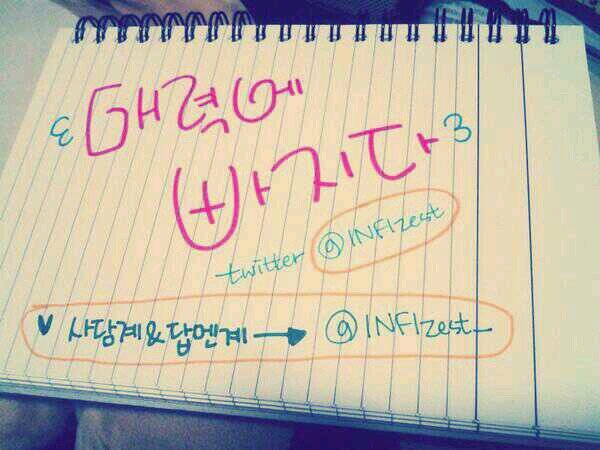 ε 매력에
바지다 3
twitter @INFIzest
v 사담계&답멘계 → @INFIzest_